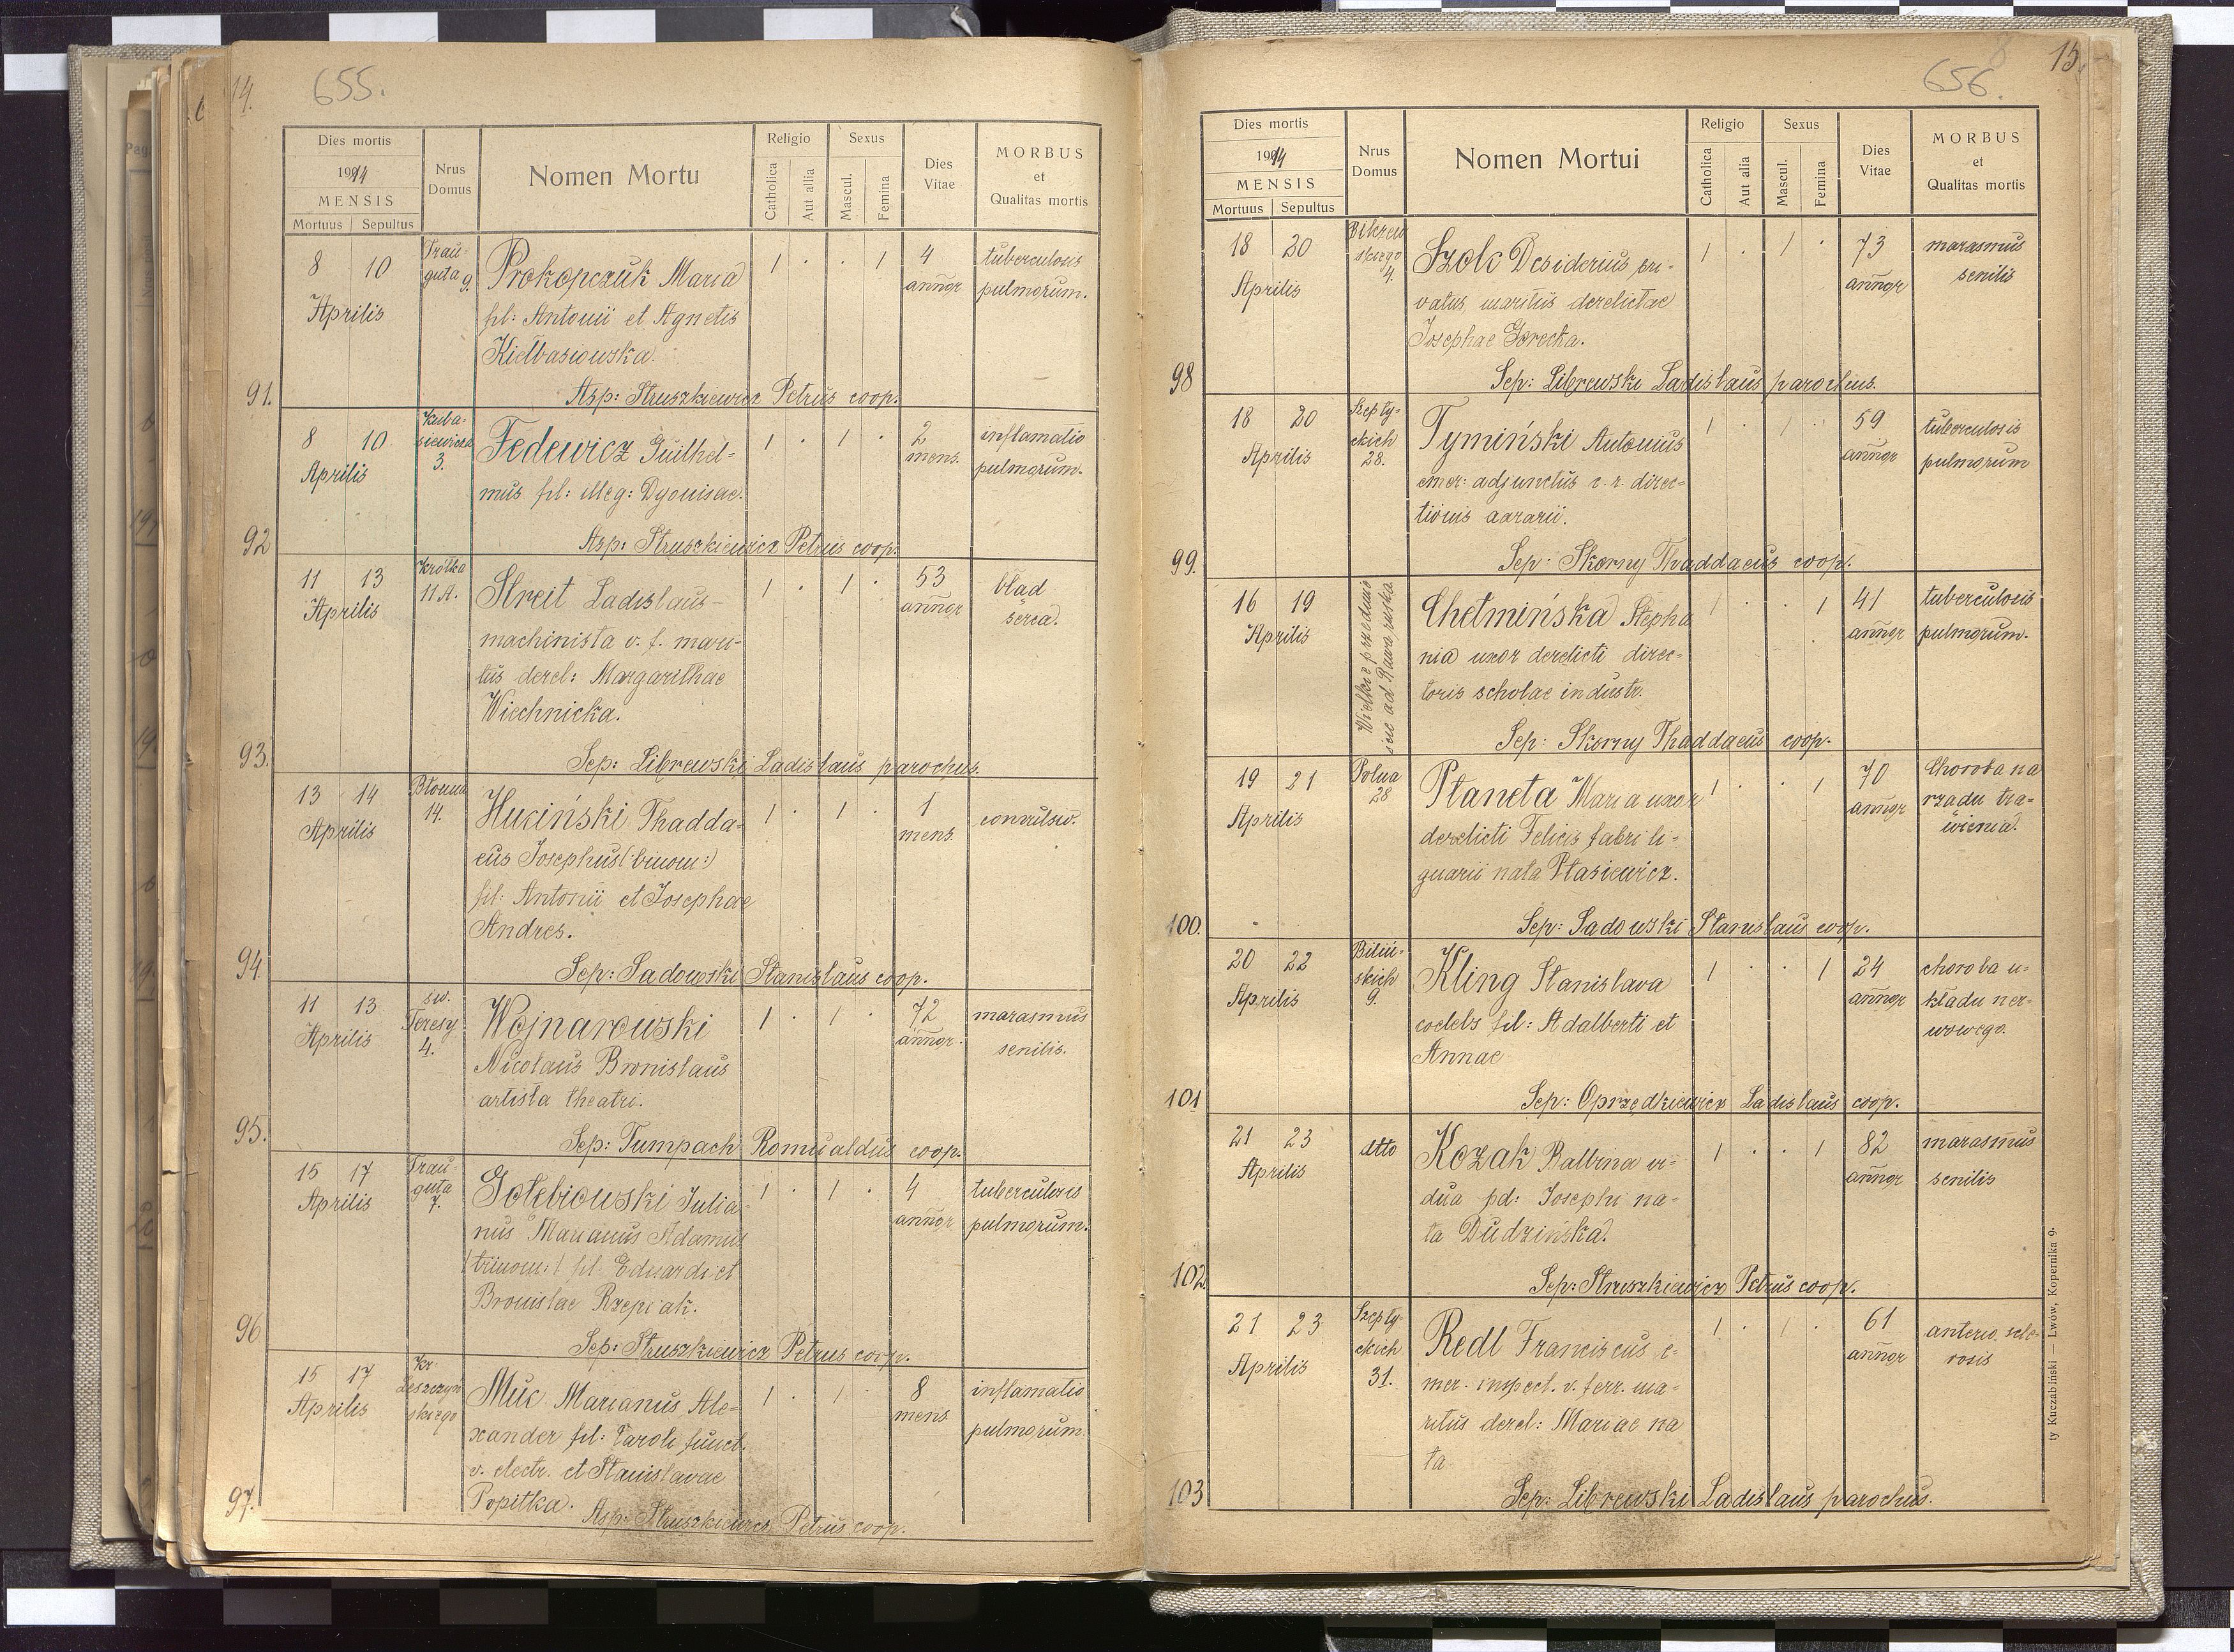 14.
655.
Dies mortis
1914
MENSIS
Mortuus Sepultus
Nrus Domus
Nomen Mortu
Religio
Catholica
Aut allia
Sexus
Mascul.
Femina
Dies Vitae
MORBUS
et
Qualitas mortis
8 10 Aprilis
Trau-
guta 9.
Prokopczuk Maria
fil: Antonii et Agnetis
Kiełbasiowska.
1 . . 1
4 annor
tuberculosis
pulmorum.
91. Asp: Struszkiewicz Petrus coop.
8 10 Aprilis
Kuba-
siewicza
3.
Fedewicz Guilhel-
mus fil: illeg: Dyonisae.
1 . 1 .
2 mens.
inflamatio
pulmorum.
92 Asp: Struszkiewicz Petrus coop.
11 13 Aprilis
Krótka
11A.
Streit Ladislaus -
machinista v. f. mari-
tus derel: Margarithae
Wiechnicka.
1 . 1 .
53 annor
bład
serca.
93. Sep: Librewski Ladislaus parochus.
13 14 Aprilis
Błonna
14.
Huciński Thadda-
eus Josephus (:binom:)
fil: Antonii et Josephae
Andres.
1 . 1 .
1 mens.
convulsio.
94. Sep: Sadowski Stanislaus coop.
11 13 Aprilis
św.
Teresy
4.
Wojnarowski
Nicolaus Bronislaus
artista theatri.
1 . 1 .
72 annor.
marasmus
senilis.
95. Sep: Tumpach Romualdus coop.
15 17 Aprilis
Trau-
guta
7.
Gołębiowski Julia-
nus Marianus Adamus
(trinom:) fil. Eduardi et
Bronislae Rzepiak.
1 . 1 .
4 annor
tuberculosis
pulmorum.
96 Sep: Struszkiewicz Petrus coop.
15 17 Aprilis
Kr.
Leszczyń
skiego
Muc Marianus Ale-
xander fil: Caroli funct.
v. electr. et Stanislavae
Popitka.
1 . 1
8 mens
inflamatio
pulmorum
97. Asp: Struszkiewicz Petrus coop.
15.
656.
Dies mortis
1914
MENSIS
Mortuus Sepultus
Nrus Domus
Nomen Mortui
Religio
Catholica
Aut alia
Sexus
Mascul.
Femina
Dies Vitae
MORBUS
et
Qualitas mortis
18 20 Aprilis
skiego
4.
Szolc Desiderius pri-
vatus maritus derelictae
Josephae Gorecka.
1 . 1 .
73 annor
marasmus
senilis
98 Sep: Librewski Ladislaus parochus.
18 20 Aprilis
Szepty-
ckich
28.
Tymiński Antonius
emer: adjunctus c. r. direc-
tionis aararii.
1 . 1 .
59 annor
tuberculosis
pulmorum
99. Sep: Skorny Thaddaeus coop.
16 19 Aprilis
Wielkie przedmie
scie ad Rawa ruska
Chełmińska Stepha
nia uxor derelicti direc-
toris scholae industr.
1 . . 1
41 annor
tuberculosis
pulmorum.
Sep: Skorny Thaddaeus coop.
19 21 Aprilis
Polna
28
Planeta Maria uxor
derelicti Felicis fabri li-
gnarii nata Ptasiewicz.
1 . . 1
70 annor
Choroba na
rządu tra-
wienia.
100. Sep: Sadowski Stanislaus coop.
20 22 Aprilis
Biliń-
skich
9.
Kling Stanislava
coelebs fil: Adalberti et
Annae
1 . . 1
24 annor
choroba u-
kładu ner-
wowego.
101 Sep: Oprzędkiewicz Ladislaus coop.
21 23 Aprilis
dtto
Kozak Balbina vi-
dua pd: Josephi na-
ta Dudzińska.
1 . . 1
82 annor
marasmus
senilis
102. Sep: Struszkiewicz Petrus coop.
21 23 Aprilis
Szepty-
ckich
31.
Redl Franciscus e-
mer. inspect. v. ferr. ma-
ritus derel: Mariae na
ta
1 . 1 .
61 annor
anterio. scle-
rosis
103 Sep: Librewski Ladislaus parochus.
ty Kuczabiński — Lwów, Kopernika 9.